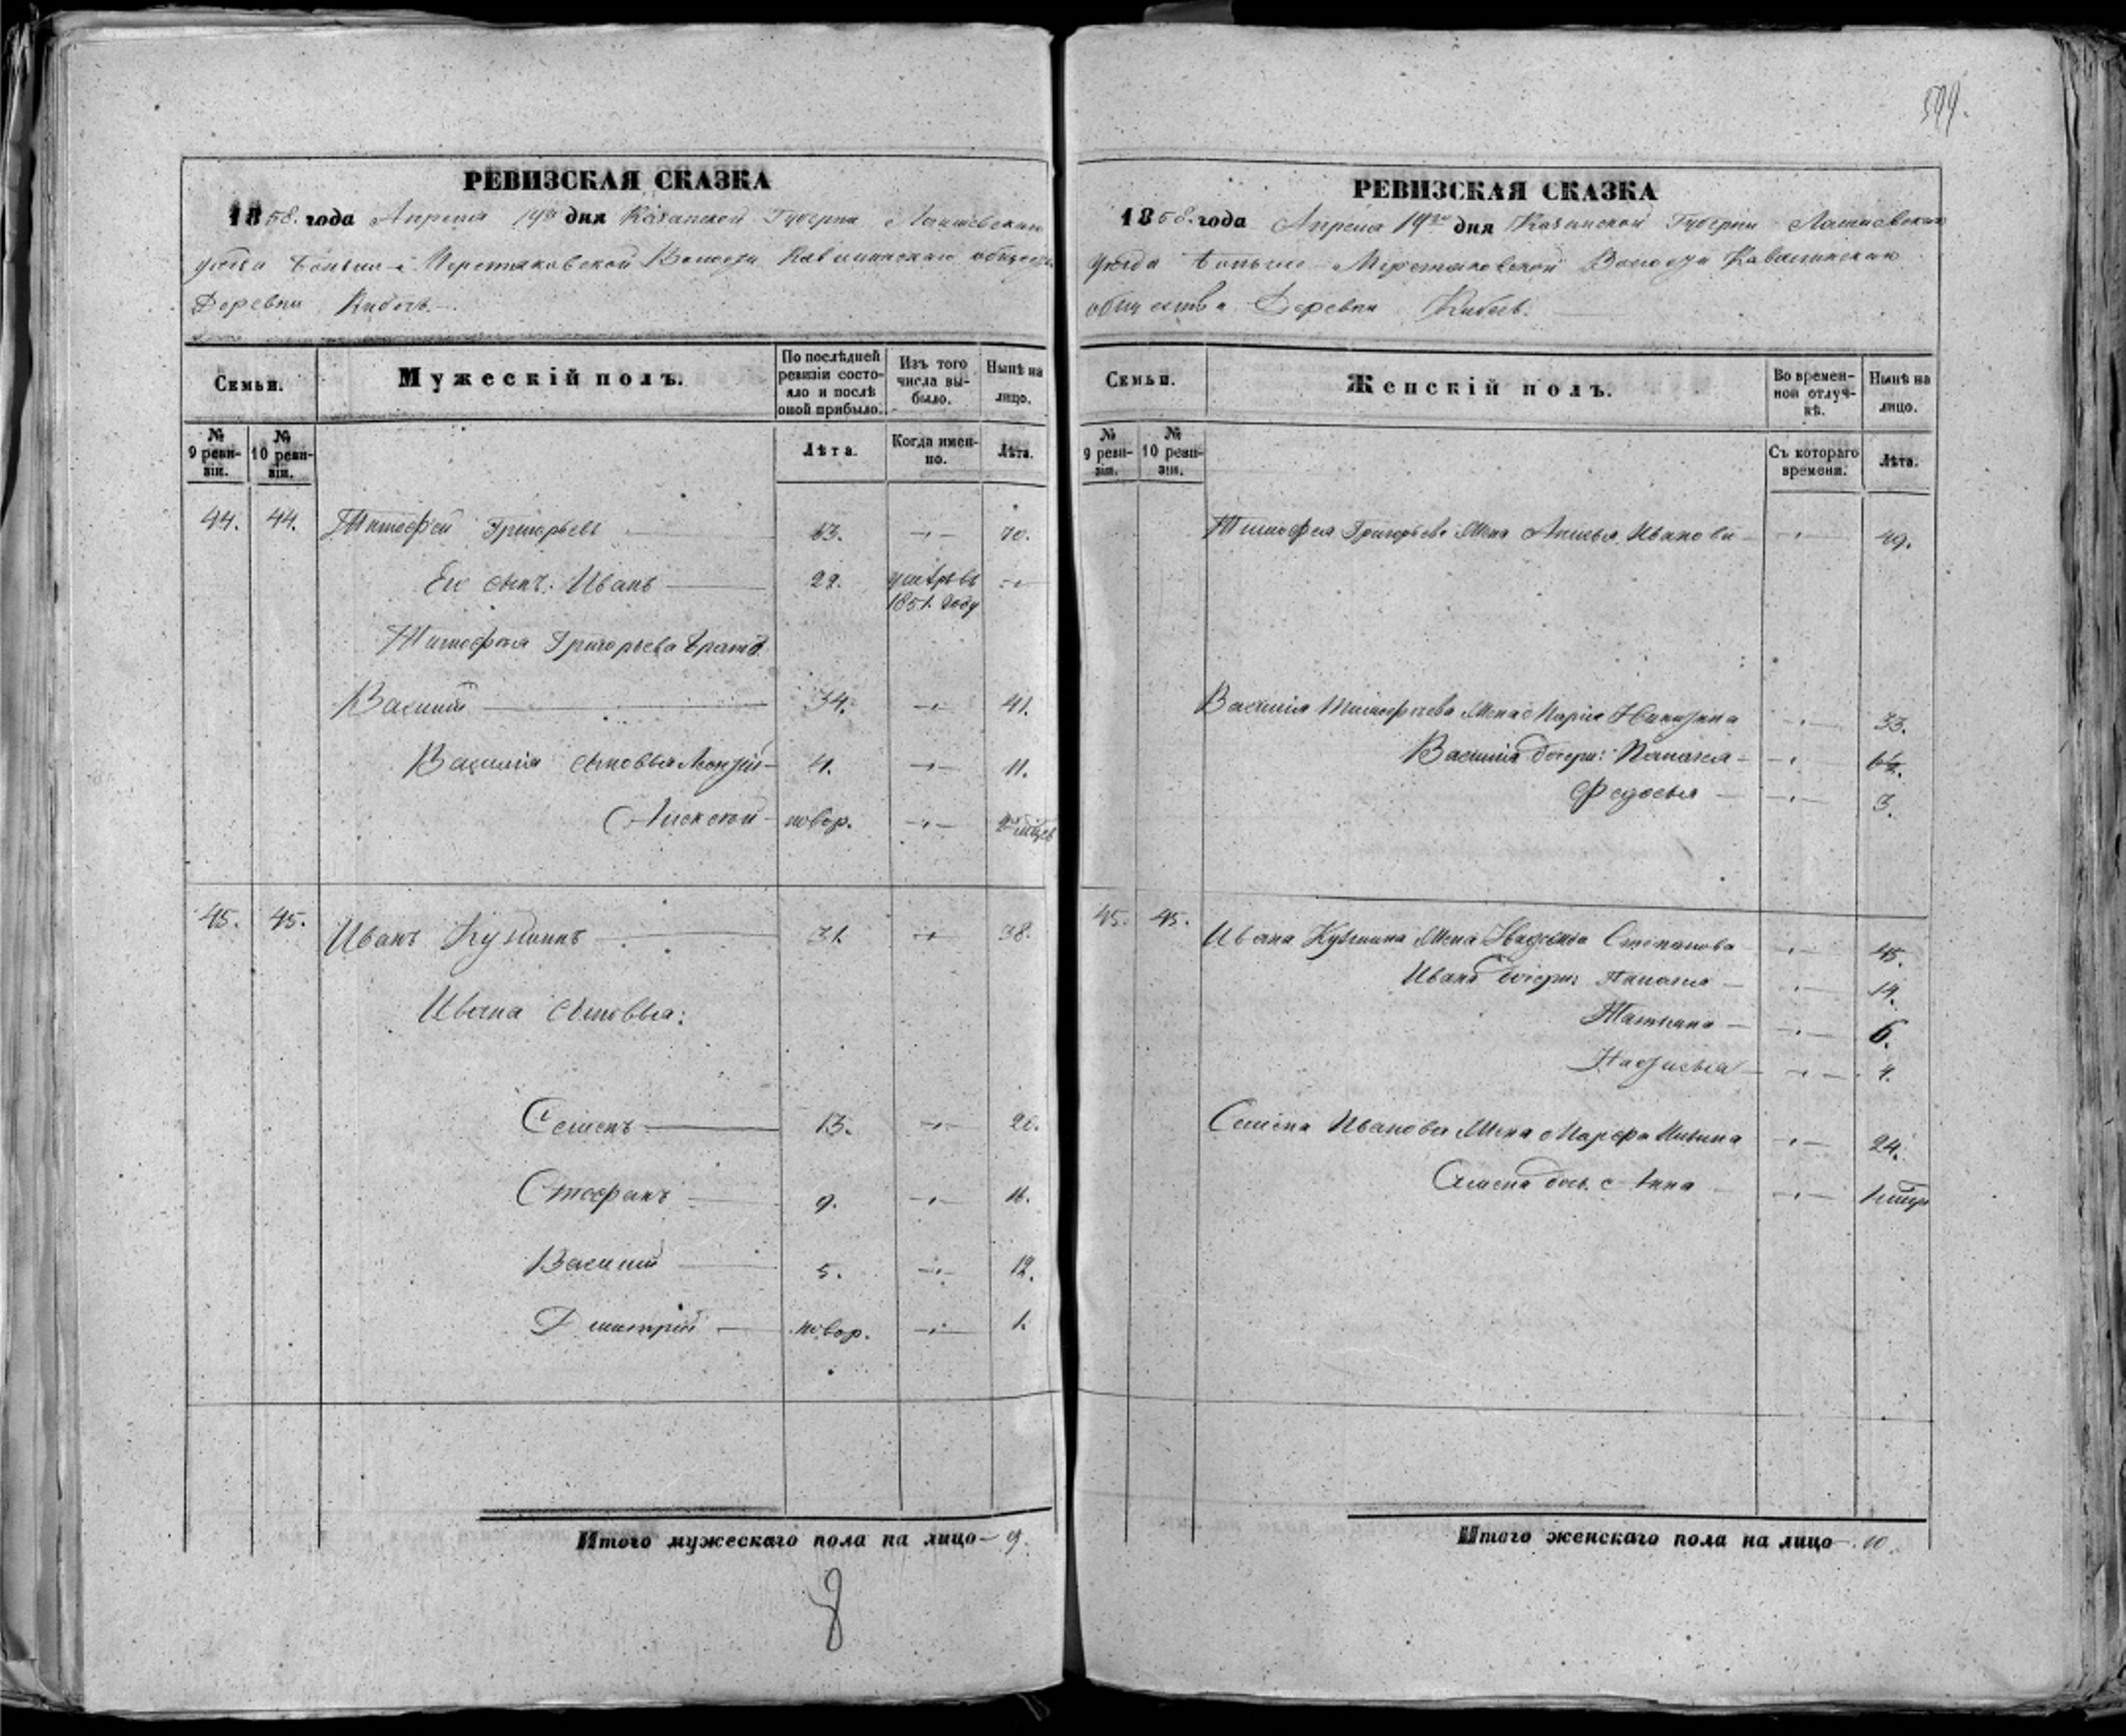 РЕВИЗСКАЯ СКАЗКА
1858. года Апреля 19го дня Казанской Губерніи Лаишевскаго
уезда Больше- Волости общества
Деревни Кибечь.
Семьи.
Мужескій полъ.
По послѣдней ревизіи состояло и послѣ оной прибыло.
Изъ того числа выбыло.
Нынѣ на лицо.
№ 9 ревизіи.
№ 10 ревизіи.
Лѣта.
Когда именно.
Лѣта.
44. 44. Тимофей Григорьевъ 63. 70.
Его сынъ: Иванъ 22. умеръ въ 1851. году
Тимофея Григорьева братъ
Василий 34. 41.
Василия сыновья 4. 11.
Алексей новор.
45. 45. Иванъ Кузминъ 31. 38.
Ивана сыновья:
Семенъ 13. 20.
Стефанъ 9. 16.
Василий 5. 12.
Дмитрий новор. 1.
Итого мужескаго пола на лицо 9.
8
РЕВИЗСКАЯ СКАЗКА
1858. года Апреля 19го дня Казанской Губерніи Лаишевскаго
уезда Больше- Волости
общества Деревни Кибечь.
Семьи.
Женскій полъ.
Во временной отлучкѣ.
Нынѣ на лицо.
№ 9 ревизіи.
№ 10 ревизіи.
Съ котораго времени.
Лѣта.
Тимофея Григорьева Жена Иванова 49.
Василия Тимофеева Жена Мария 33.
Василия дочери: Пелагея
Федосья 3.
45. 45. Ивана Кузмина Жена Степанова 45.
Ивана дочери: 14.
Татьяна 6.
Настасья 4.
Семена Иванова Жена Марфа 24.
Семена дочь Анна
Итого женскаго пола на лицо 10.